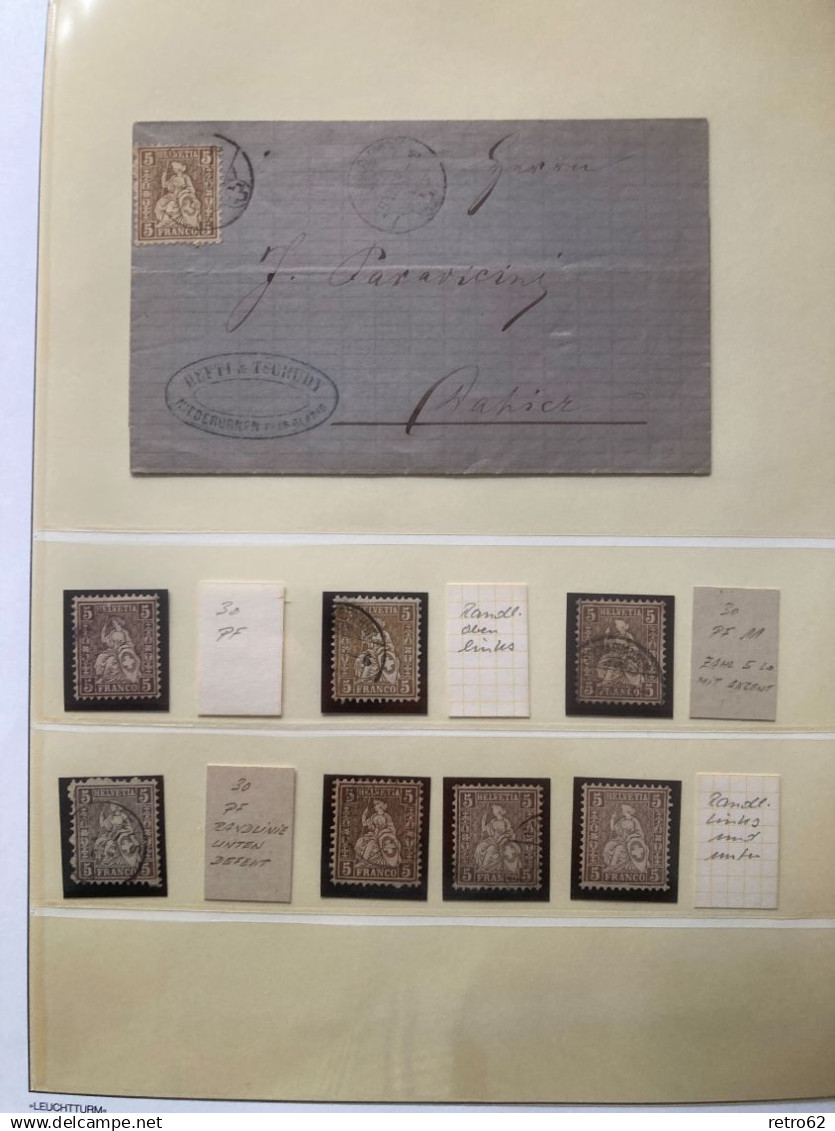 5 HELVETIA 5
5 FRANCO 5
Herrn
J. Paravicini
HEFTI & TSCHUDY
NIEDERURNEN
5 HELVETIA 5
5 FRANCO 5
30
PF
5 HELVETIA 5
5 FRANCO 5
Randl.
oben
links
5 HELVETIA 5
5 FRANCO 5
30
PF 11
ZAHL 5 LO
MIT AKZENT
5 HELVETIA 5
5 FRANCO 5
30
PF
RANDLINIE
UNTEN
DEFEKT
5 HELVETIA 5
5 FRANCO 5
5 HELVETIA 5
5 FRANCO 5
5 HELVETIA 5
5 FRANCO 5
Randl.
links
und
unten
»LEUCHTTURM«
www.delcampe.net
retro62